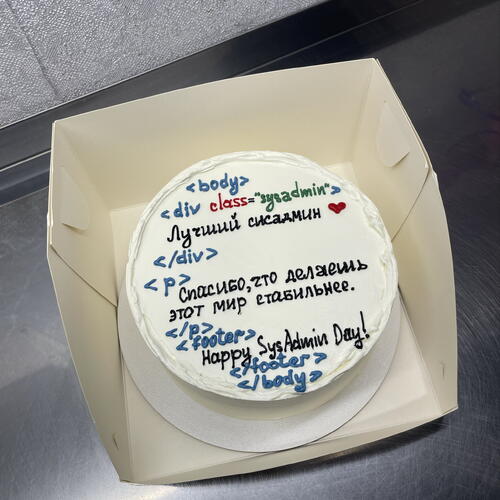 <body>
<div class="sysadmin">
Лучший сисадмин ❤
</div>
<p>
Спасибо, что делаешь
этот мир стабильнее.
</p>
<footer>
Happy SysAdmin Day!
</footer>
</body>